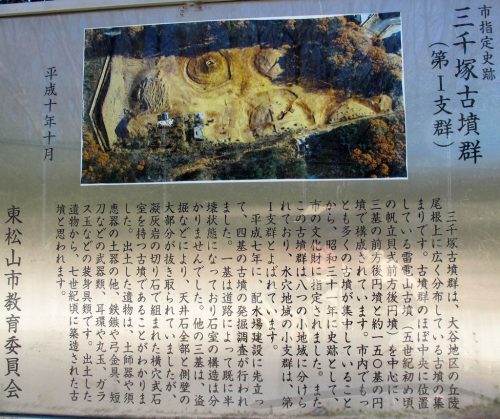 市指定史跡
三千塚古墳群
(第Ⅰ支群)
平成十年十月
三千塚古墳群は、大谷地区の丘陵
尾根上に広く分布している古墳の集
まりです。古墳群のほぼ中央に位置
している雷電山古墳(五世紀初め頃
の帆立貝式前方後円墳)を中心に、
三基の前方後円墳と約一五〇基の円
墳で構成されています。市内でもっ
とも多くの古墳が集中していること
から、昭和三十一年に史跡として、
市の文化財に指定されました。また
この古墳群は八つの小地域に分けら
れており、水穴地域の小支群は、第
Ⅰ支群とよばれています。
平成七年に、配水場建設に先立っ
て、四基の古墳の発掘調査が行われ
ました。一基は道路によって既に半
壊状態になっており石室の構造は分
かりませんでした。他の三基は、盗
掘などにより、天井石全部と側壁の
大部分が抜き取られていましたが、
凝灰岩の切り石で組まれた横穴式石
室を持つ古墳であることがわかりま
した。出土した遺物は、土師器や須
恵器の土器の他、鉄鏃や弓金具、短
刀などの武器類、耳環や丸玉、ガラ
ス玉などの装身具類です。出土した
遺物から、七世紀頃に築造された古
墳と思われます。
東松山市教育委員会